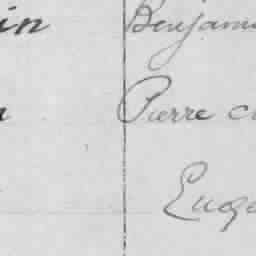 in Benjami
Pierre c
Euge